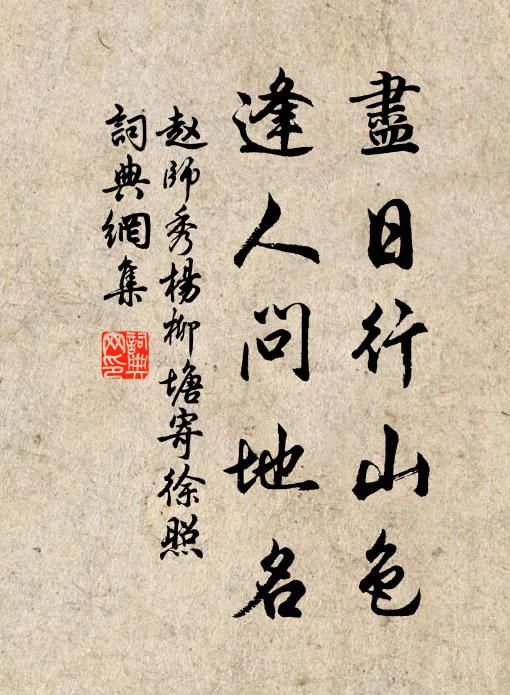 盡日行山色
逢人問地名
赵師秀楊柳塘寄徐照
詞典網集
詞典网印